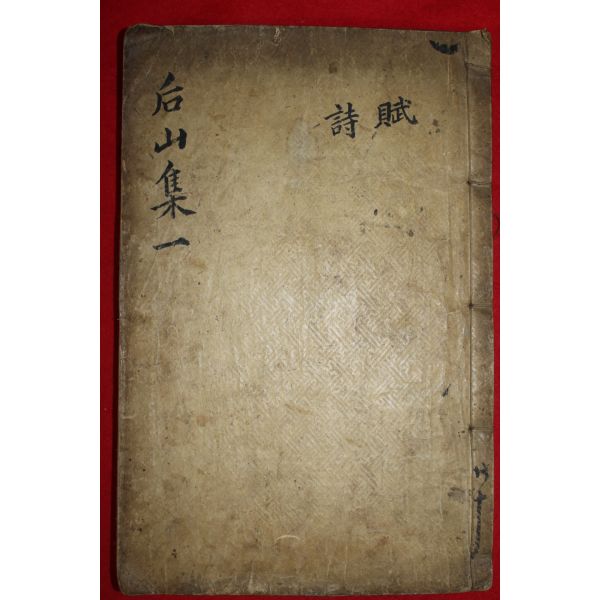 后山集一
賦
詩